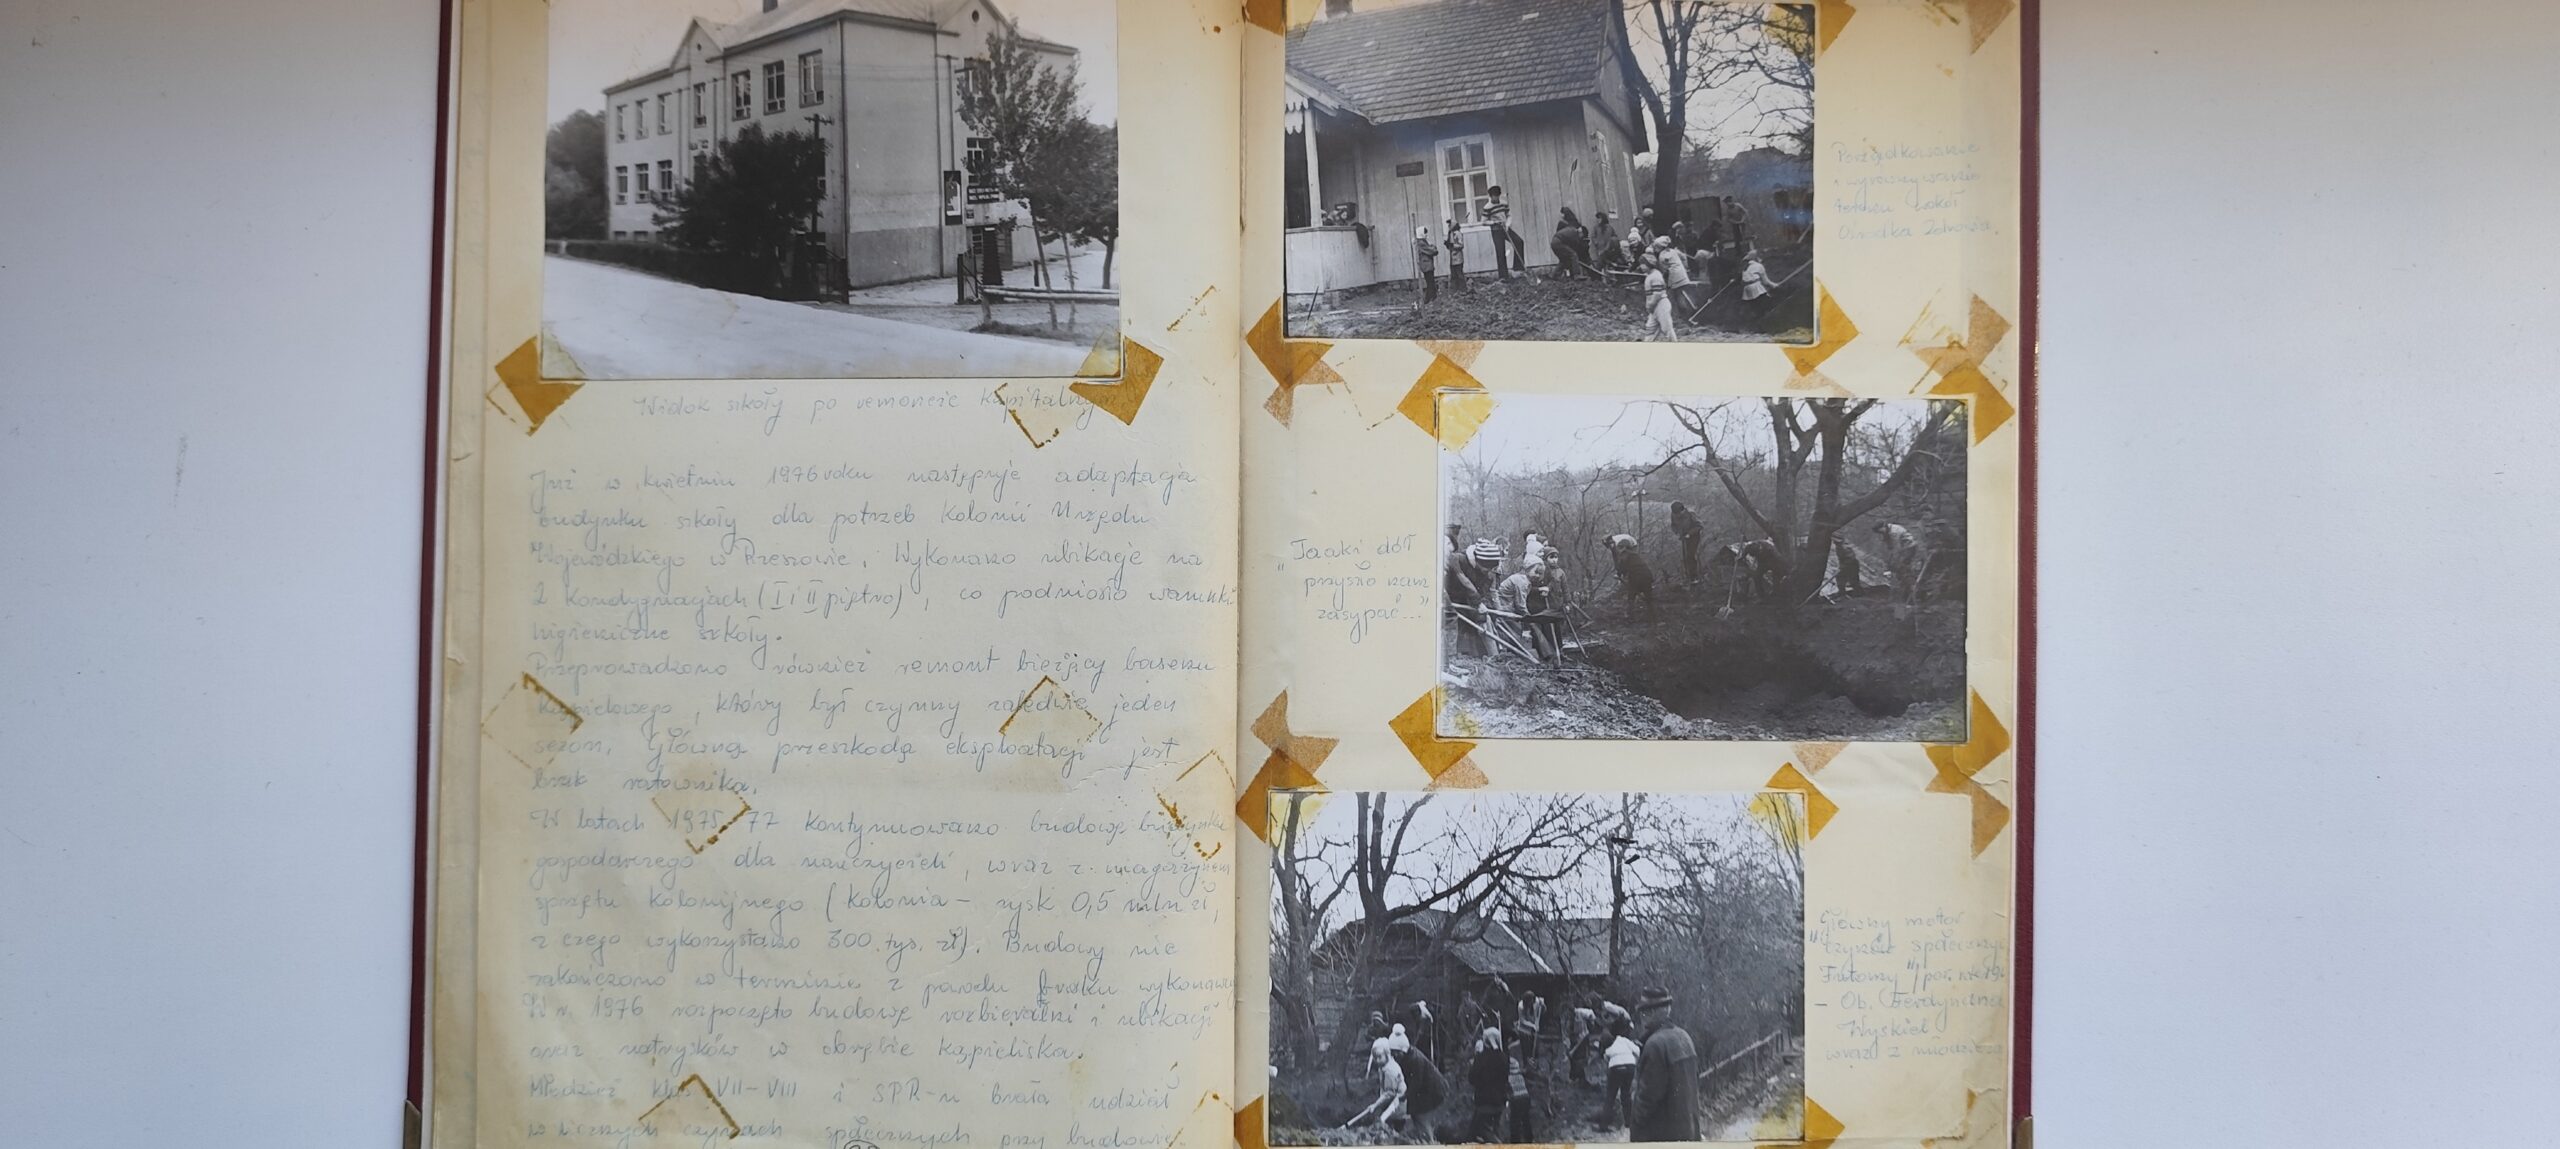 Widok szkoły po remoncie kapitalnym.
Już w kwietniu 1976 roku następuje adaptacja
budynku szkoły dla potrzeb kolonii Urzędu
Wojewódzkiego w Rzeszowie. Wykonano ubikacje na
2 kondygnacjach (I i II piętro), co podniosło warunki
higieniczne szkoły.
Przeprowadzono również remont bieżący basenu
kąpielowego, który był czynny zaledwie jeden
sezon. Główną przeszkodą eksploatacji jest
brak ratownika.
W latach 1975 77 kontynuowano budowę budynku
gospodarczego dla nauczycieli, wraz z magazynem
sprzętu kolonijnego (kolonia - zysk 0,5 mln zł,
z czego wykorzystano 300 tys. zł). Budowy nie
zakończono w terminie z powodu braku wykonawcy
W r. 1976 rozpoczęto budowę rozbieralni i ubikacji
oraz natrysków w obrębie kąpieliska.
Młodzież klas VII-VIII i SPR-u brała udział
w licznych czynach społecznych przy budowie
Porządkowanie
i wyrównywanie
terenu wokół
Ośrodka Zdrowia.
"Taaki dół
przyszło nam
zasypać..."
Główny motor
"czynów społecznych
Frutowy"
- Ob. Ferdynand
Wyskiel
wraz z młodzieżą